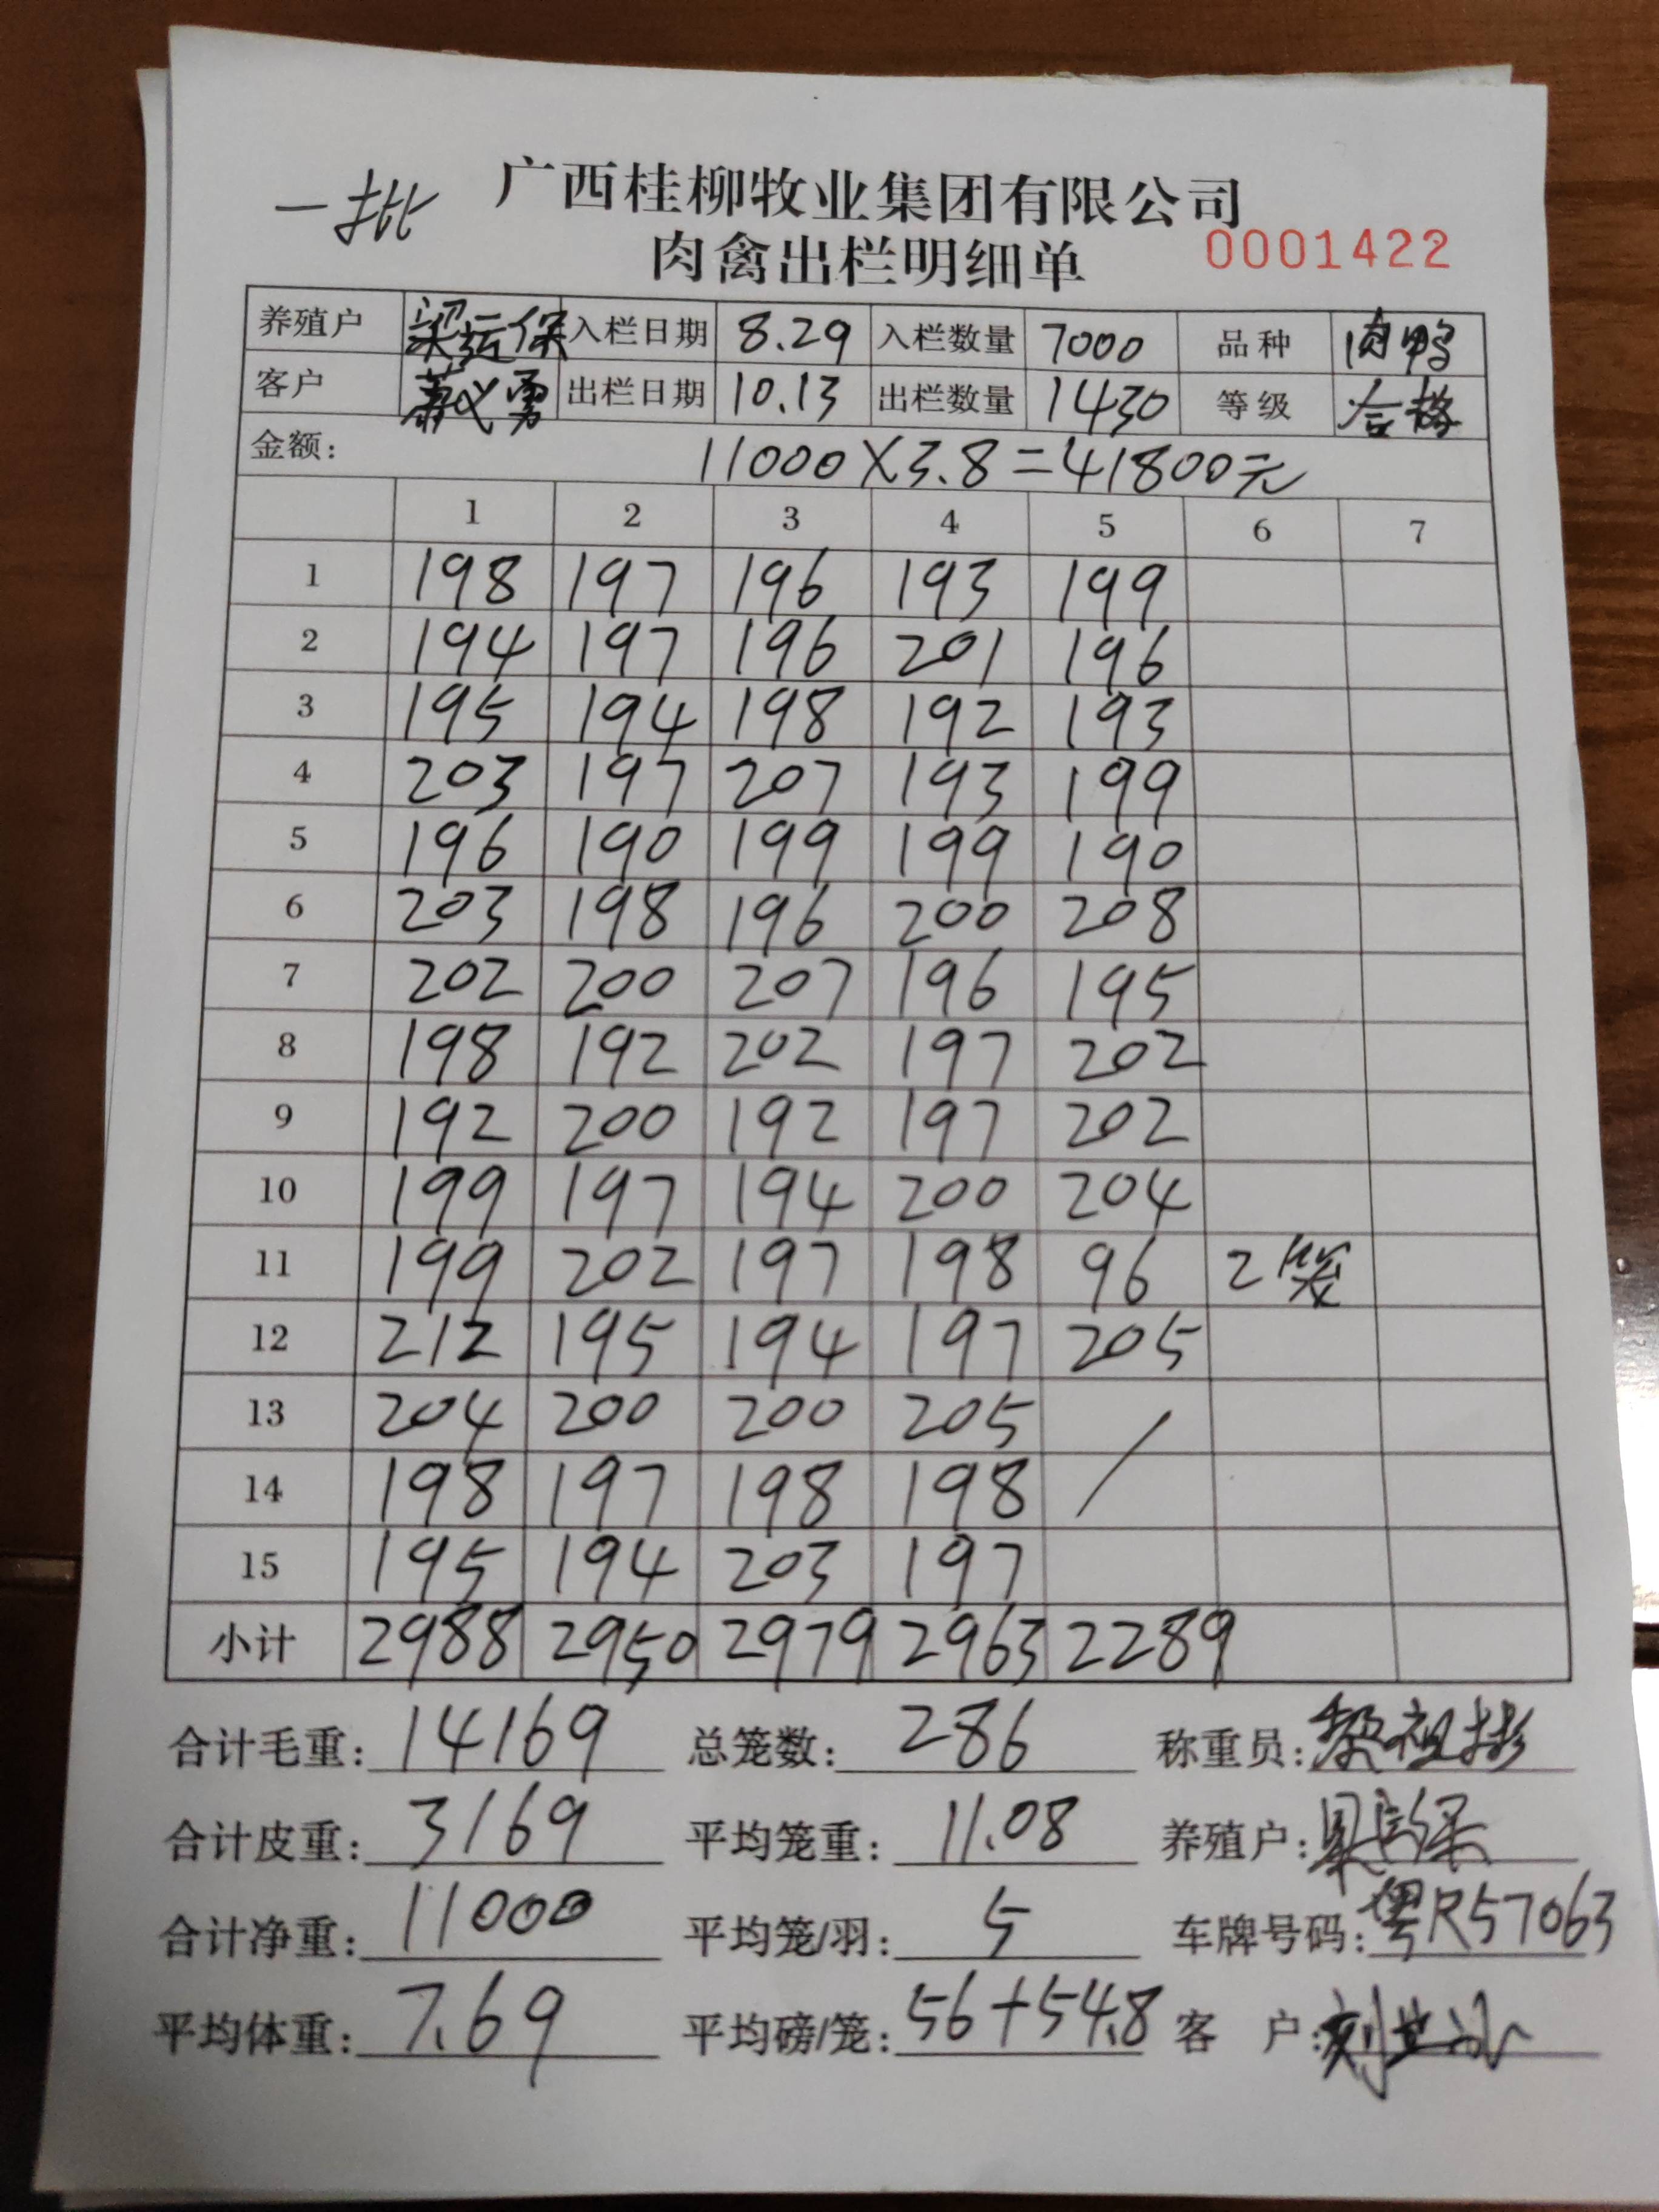 一批
广西桂柳牧业集团有限公司
肉禽出栏明细单 0001422
养殖户 梁运保 入栏日期 8.29 入栏数量 7000 品种 肉鸭
客户 萧义勇 出栏日期 10.13 出栏数量 1430 等级 合格
金额: 11000×3.8=41800元
1 2 3 4 5 6 7
1 198 197 196 193 199
2 194 197 196 201 196
3 195 194 198 192 193
4 203 197 207 193 199
5 196 190 199 199 190
6 203 198 196 200 208
7 202 200 207 196 195
8 198 192 202 197 202
9 192 200 192 197 202
10 199 197 194 200 204
11 199 202 197 198 96 2笼
12 212 195 194 197 205
13 204 200 200 205
14 198 197 198 198
15 195 194 203 197
小计 2988 2950 2979 2963 2289
合计毛重: 14169 总笼数: 286 称重员: 黎祖彬
合计皮重: 3169 平均笼重: 11.08 养殖户:
合计净重: 11000 平均笼/羽: 5 车牌号码: 粤R57063
平均体重: 7.69 平均磅/笼: 56+54.8 客 户: